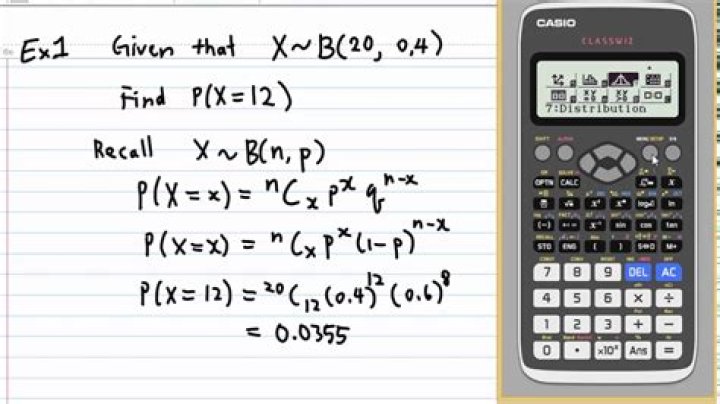 Ex1 Given that X~B(20, 0.4)
Find P(X=12)
Recall X~B(n, p)
P(X=x) = ⁿCₓ pˣ qⁿ⁻ˣ
P(X=x) = ⁿCₓ pˣ (1-p)ⁿ⁻ˣ
P(X=12) = ²⁰C₁₂ (0.4)¹² (0.6)⁸
= 0.0355
CASIO
CLASSWIZ
7:Distribution
SHIFT ALPHA MENU SETUP
OPTN CALC x
log ln
(−) sin cos tan
STO ENG ( ) S⇔D M+
7 8 9 DEL AC
4 5 6 × ÷
1 2 3 + −
0 • ×10ˣ Ans =